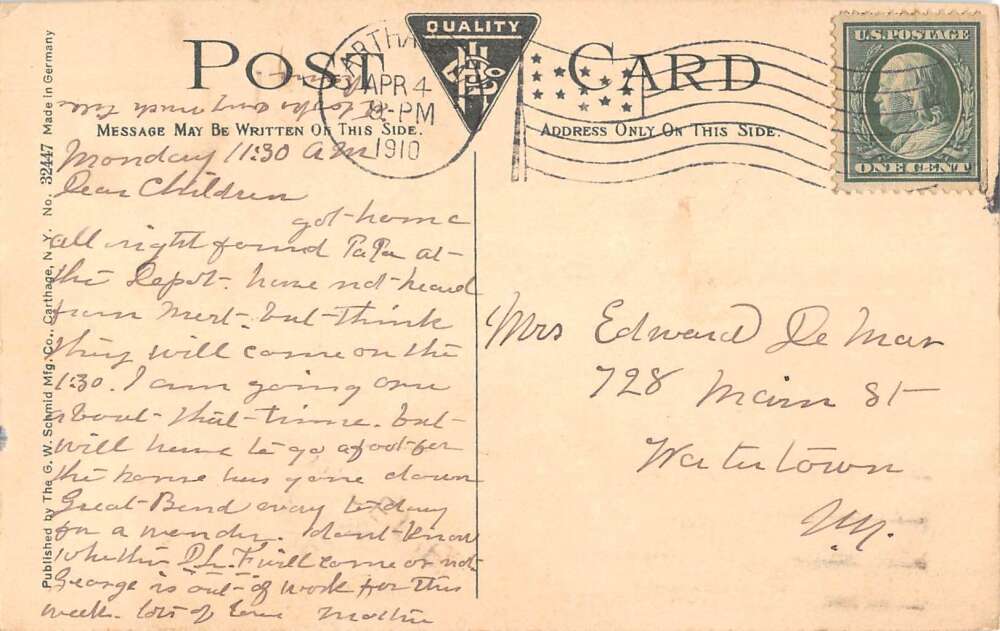 POST CARD
QUALITY
CARTHA
APR 4
8-PM
1910
U.S. POSTAGE
ONE CENT
MESSAGE MAY BE WRITTEN ON THIS SIDE.
ADDRESS ONLY ON THIS SIDE.
Published by The G. W. Schmid Mfg. Co., Carthage, N. Y. No. 32447 Made in Germany
Monday 11:30 A M
Dear Children
got home
all right found Pa Pa at
the Depot. have not heard
from Mert. but think
they will come on the
1:30. I am going over
about that time. but
will have to go afoot for
the horse has gone down
Great Bend way to day
for a wonder. dont know
whether D. L. F will come or not
George is out of work for this
week. lots of love Mother
Mrs Edward De Mar
728 Main St
Watertown
N.Y.